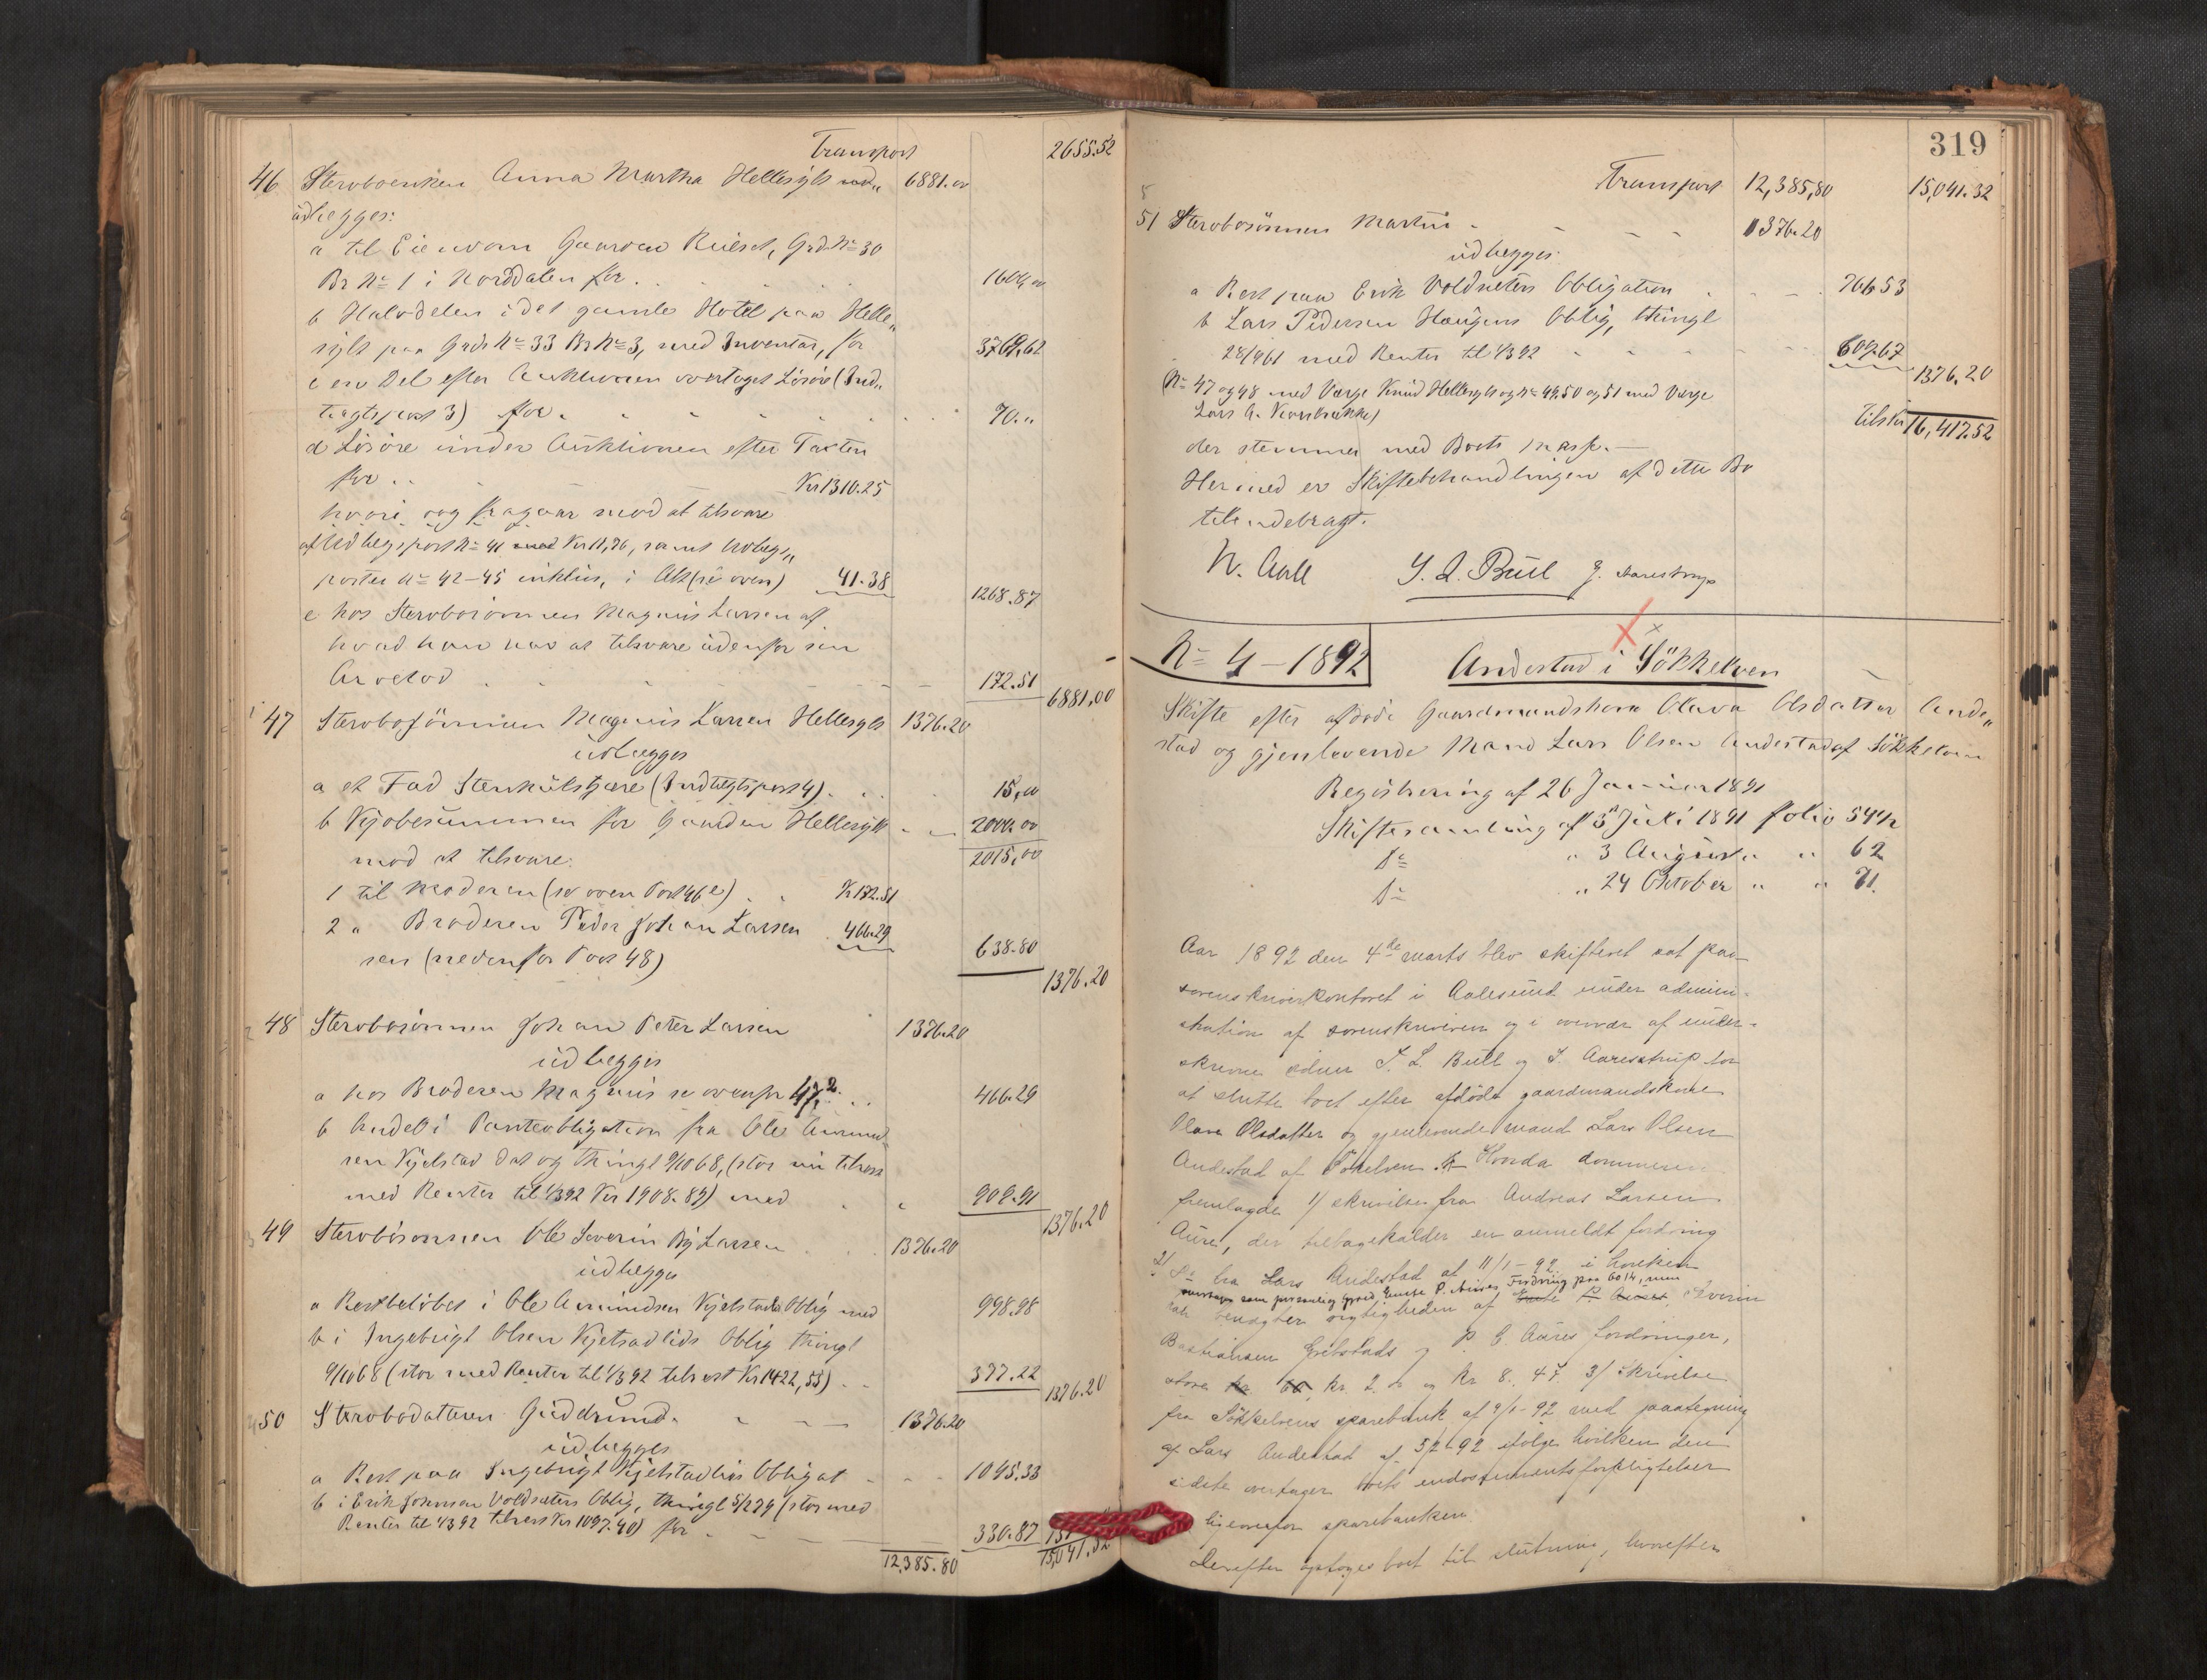 Transport 2655.52
46 Sterboenken Anna Martha Hellesylt 6881.00
udlægges:
a til Eiendom Gaarden Grdr Nº 30
Br Nº 1 i Norddalen for . .
b Halvdelen i det gamle Hotel paa Helle„
sylt paa Grdr Nº 33 Br Nº 3, med Inventar, for
c en Del efter Auktionen overtaget Løsøre (Ind„
tægtspost 3) for . 70.„
d Løsøre under Auktionen efter Taxten
for . . Kr 1310.25
hvori mod at tilsvare
af Udlægspost Nº 41 Kr 11,76, samt Udlægs„
poster Nº 42-45 inklus, i Alt (se oven) 41.38 1268.87
e hos Sterbosønnen Magnus Larsen af
hvad han har at tilsvare udenfor sin
Arvelod 172.51 6881,00
47 Sterbosønnen Magnus Larsen Hellesylt 1376.20
udlægges
a et Fad Stenkulstjære (Indtægtspost 4) . . 15,00
b Kjøbesummen for Gaarden Hellesylt 2000.00
mod at tilsvare: 2015,00
1 til Moderen (se oven Post 46 e) . . Kr 172.51
2 „ Broderen Peder Johan Larsen 466.29 638.80
sen (nedenfor Post 48) 1376.20
48 Sterbosønnen Johan Peter Larsen 1376.20
udlægges
a hos Broderen Magnus se ovenfor 47,2 . . 466.29
b Andel i Panteobligation fra Ole Amund„
sen Kjelstad dat og thingl 9/10 68, (stor nu tilrest
med Renter til 1/3 92 Kr 1908.89) med 909.91 1376.20
49 Sterbosønnen Ole Severin Larsen 1376.20
udlægges
a Restbeløbet i Ole Amundsen Kjelstads Oblig med 998.98
b i Ingebrigt Olsen Kjelstadlids Oblig thingl
9/10 68 (stor med Renter til 1/3 92 tilrest Kr 1422,55) . . 377.22 1376.20
50 Sterbodatteren Guddrund. 1376.20
udlægges
a Rest paa Ingebrigt Kjelstadlis Obligat 1045.33
b i Erik Johnsen Voldsæters Oblig, thingl 5/2 79 (stor med
Renter til 1/3 92 tilrest Kr 1097.40) for 330.87
12,385.80 15,041.32
319
Transport 12,385,80 15,041.32
51 Sterbosønnen Martin 1376.20
udlægges:
a Rest paa Erik Voldsæters Obligation 766 53
b Lars Pedersen Haugens Oblig, thingl
28/9 61 med Renter til 1/3 92 609.67 1376.20
(Nº 47 og 48 med Værge Knud Hellesylt og Nº 49.50 og 51 med Værge
Lars A. 16,417.52
der stemmer med Boets Masse.
Hermed er Skiftebehandlingen af dette Bo
tilendebragt.
N. Aall S. L. Bull J. Aarestrup
Nº 4 – 1892 Andestad i Søkkelven
Skifte efter afdøde Gaardmandskone Olava Olsdatter Ande„
stad og gjenlevende Mand Lars Olsen Andestad af Søkkelven
Registrering af 26 Januar 1891
Skiftesamling af 5 Juli 1891 folio 54
Dº „ 3 August „ „ 62
Dº „ 24 Oktober „ „ 71.
Aar 1892 den 4de marts blev skifteret sat paa
sorenskriverkontoret i Aalesund under admini-
stration af sorenskriveren og i overvær af under-
skrevne vidner S. L. Bull og J. Aarestrup for
at slutte boet efter afdøde gaardmandskone
Olava Olsdatter og gjenlevende mand Lars Olsen
Andestad af Søkelven. Hvorda dommeren
fremlagde 1/ skrivelse fra Andreas Larsen
Aure, der tilbagekalder en anmeldt fordring
2/ Dº fra Lars Andestad af 11/1-92 i hvilken
overtages som personlig Gjæld P. Aures Fordring paa 60 , men
benægter rigtigheden af
Bastiansen Grebstads og P. G. Aures fordringer,
store kr. 2. og kr 8., 47 3/ skrivelse
fra Søkkelvens sparebank af 9/1-92 med paategning
af Lars Andestad af 5/2-92 ifølge hvilken den
sidste overtager boets endossementsforpligtelser
ligeoverfor sparebanken.
Derefter optoges boet til slutning, hvorefter